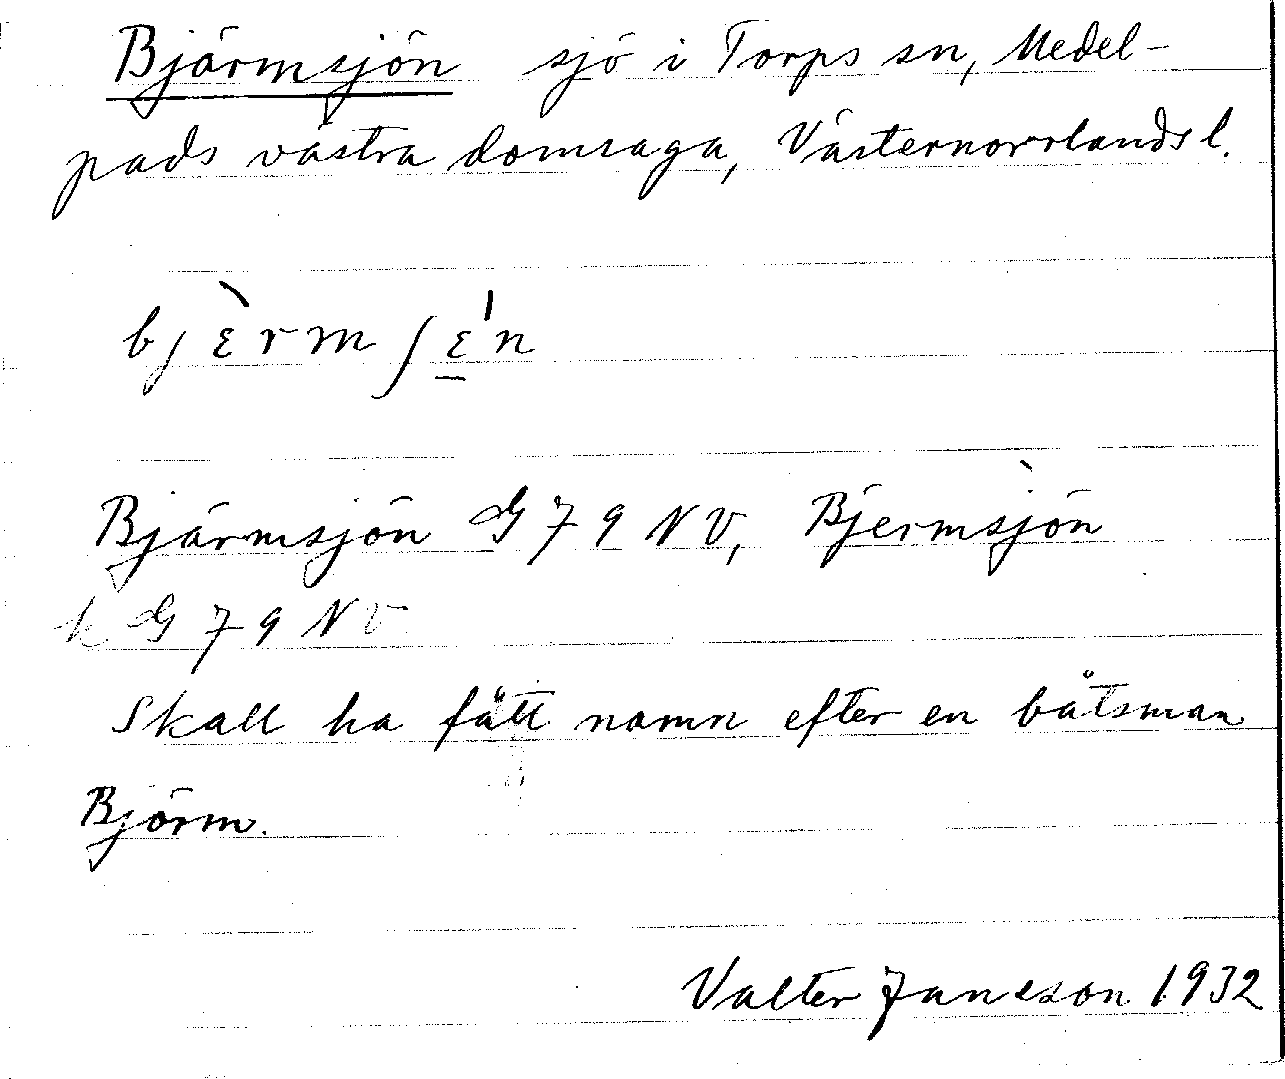 Bjärmsjön sjö i Torps sn, Medel-
pads västra domsaga, Västernorrlands l.
bjɛ̀rmʃɛ̠́n
Bjärmsjön G 79 NV, Bjermsjön
k G 79 NV
Skall ha fått namn efter en båtsman
Björm.
Valter Janeson 1932